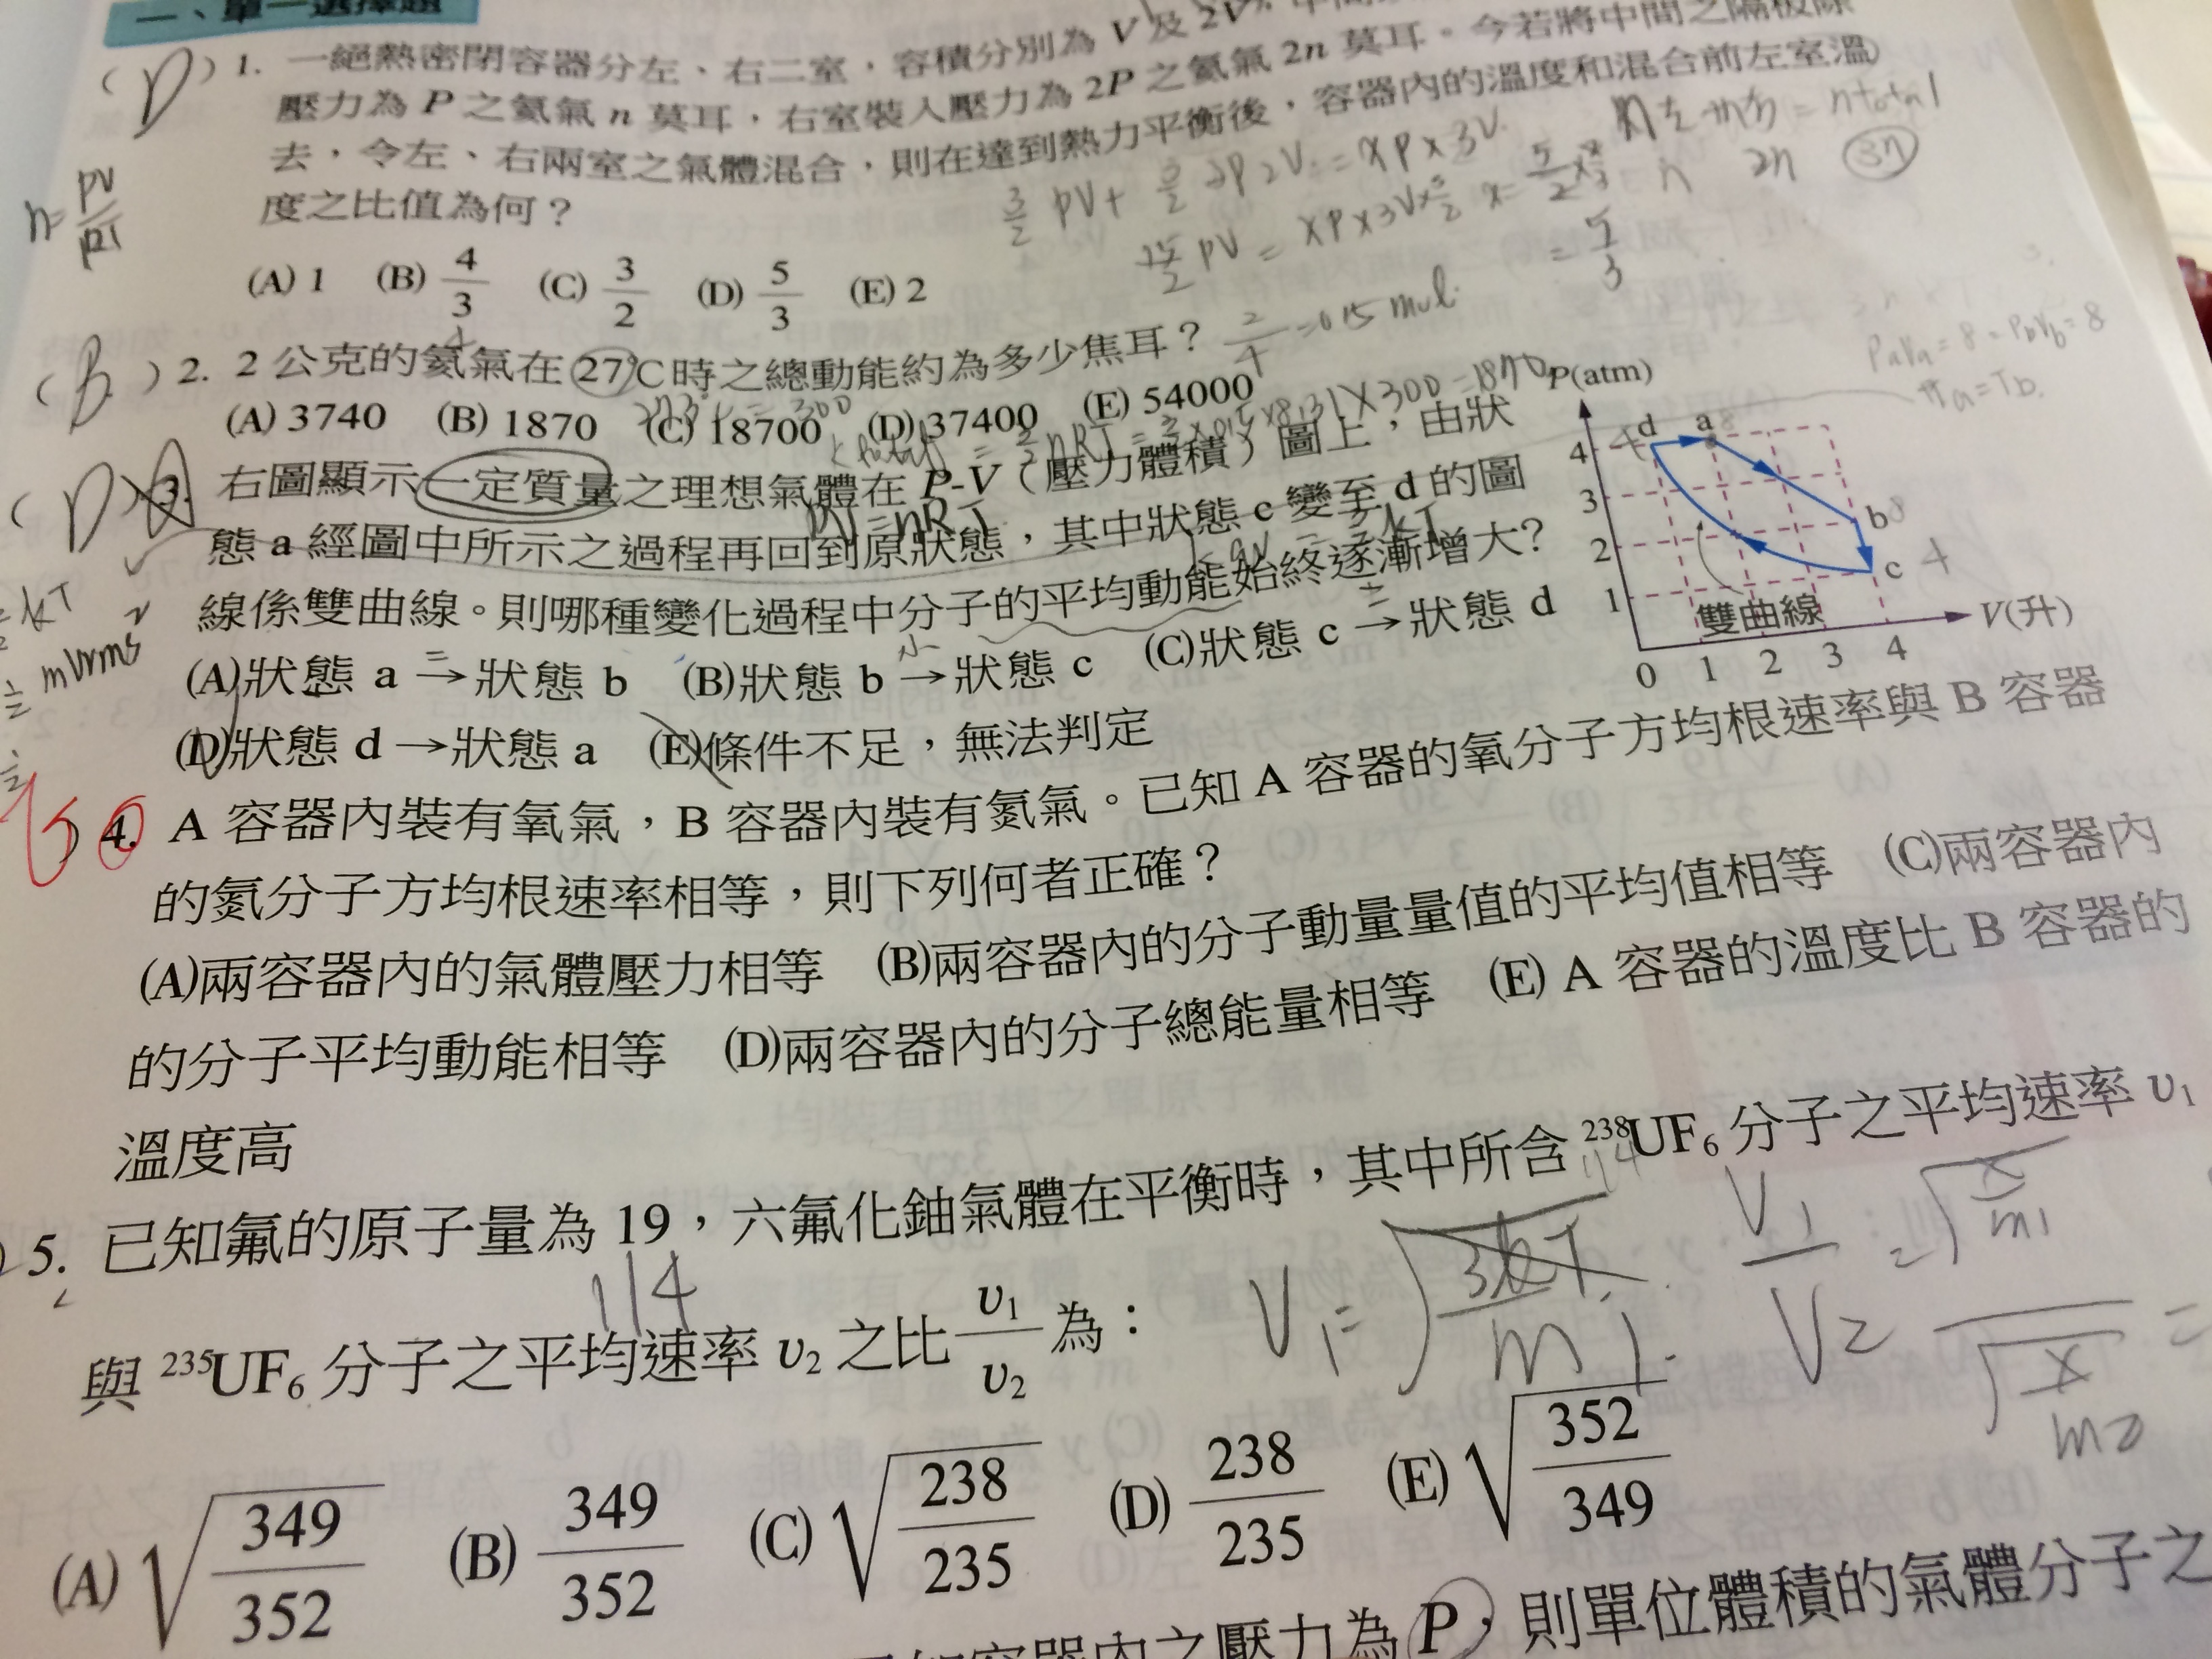 一、單一選擇題
(D) 1. 一絕熱密閉容器分左、右二室，容積分別為 V 及 2V，中間
壓力為 P 之氦氣 n 莫耳，右室裝入壓力為 2P 之氦氣 2n 莫耳。今若將中間之隔板除
去，令左、右兩室之氣體混合，則在達到熱力平衡後，容器內的溫度和混合前左室溫
度之比值為何？
n = PV/RT
3/2 PV + 3/2 2P2V = xP×3V
n左+n右 = ntotal
n 2n 3n
15/2 PV = xP×3V×3/2
= 5/3
(A) 1 (B) 4/3 (C) 3/2 (D) 5/3 (E) 2
(B) 2. 2 公克的氦氣在 27°C 時之總動能約為多少焦耳？
2/4 = 0.5 mol
(A) 3740 (B) 1870 (C) 18700 (D) 37400 (E) 54000
PaVa = 8 = PbVb = 8
Ta = Tb
(D) 3. 右圖顯示一定質量之理想氣體在 P-V（壓力體積）圖上，由狀
態 a 經圖中所示之過程再回到原狀態，其中狀態 c 變至 d 的圖
線係雙曲線。則哪種變化過程中分子的平均動能始終逐漸增大?
PV = nRT
(A)狀態 a → 狀態 b (B)狀態 b → 狀態 c (C)狀態 c → 狀態 d
(D)狀態 d → 狀態 a (E)條件不足，無法判定
P(atm)
4
3
2
1
0 1 2 3 4
V(升)
d a
b
c
雙曲線
4. A 容器內裝有氧氣，B 容器內裝有氮氣。已知 A 容器的氧分子方均根速率與 B 容器
的氮分子方均根速率相等，則下列何者正確？
(A)兩容器內的氣體壓力相等 (B)兩容器內的分子動量量值的平均值相等 (C)兩容器內
的分子平均動能相等 (D)兩容器內的分子總能量相等 (E) A 容器的溫度比 B 容器的
溫度高
5. 已知氟的原子量為 19，六氟化鈾氣體在平衡時，其中所含 ²³⁸UF₆ 分子之平均速率 υ₁
114
與 ²³⁵UF₆ 分子之平均速率 υ₂ 之比 υ₁/υ₂ 為：
V₁ = √(3kT/m₁)
V₁/V₂ = √(x/m₁) / √(x/m₂) =
(A) √(349/352) (B) 349/352 (C) √(238/235) (D) 238/235 (E) √(352/349)
容器內之壓力為 P，則單位體積的氣體分子之